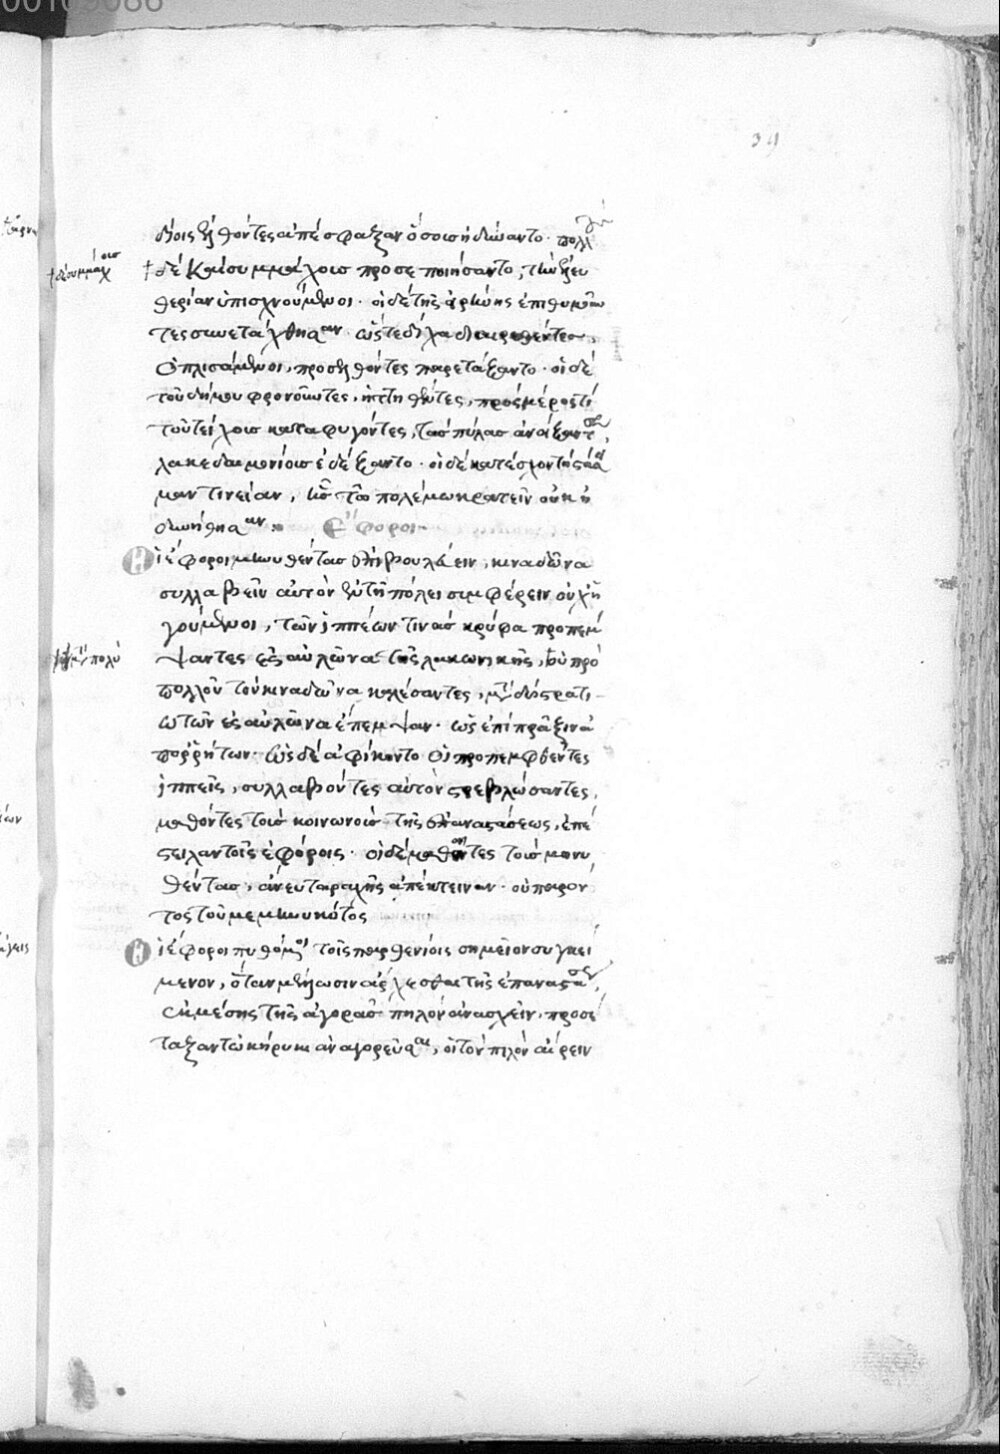 δίοις ἐξελθόντες ἀπέσφαξαν ὅσοις ἠδύναντο· πολλοὺς
† δὲ καὶ συμμάχοις προσεποιήσαντο, τὴν ἐλευ
θερίαν ὑπισχνούμενοι· οἱ δὲ τῆς ἀρχῆς ἐπιθυμοῦν
τες συνετάχθησαν· ὥστε δίχα διαιρεθέντες,
ὁπλισάμενοι, προσελθόντες παρετάξαντο· οἱ δὲ
τοῦ δήμου φρονοῦντες, ἡττηθέντες, πρὸς μέρος τι
τοῦ τείχοις καταφυγόντες, τὰς πύλας ἀνοίξαντες,
λακεδαιμονίοις ἐδέξαντο· οἱ δὲ κατέσχον τῆς
μαντινείαν, ἣν τῶ πολέμω κρατεῖν οὐκ ἠ
δυνήθησαν:
ἔφοροι
οἱ ἔφοροι μηνυθέντας ἐπιβουλεύειν, κιναδῶνα
συλλαβεῖν αὐτὸν ἐν τῆ πόλει συμφέρειν οὐχ ἡ
γούμενοι, τῶν ἱππέων τινὰς κρύφα προπέμ
ψαντες ἐς αὐλῶνα τῆς λακωνικῆς, οὐ πρὸ
πολλοῦ τὸν κιναδῶνα καλέσαντες, μετὰ δύο στρατι
ωτῶν ἐς αὐλῶνα ἔπεμψαν· ὡς ἐπὶ πρᾶξιν ἀ
πορρήτων· ὡς δὲ ἀφίκοντο οἱ προπεμφθέντες
ἱππεῖς, συλλαβόντες αὐτὸν στρεβλώσαντες,
μαθόντες τοὺς κοινωνοὺς τῆς ἐπαναστάσεως, ἐπέ
στειλαν τοῖς ἐφόροις· οἱ δὲ μαθόντες τοὺς μηνυ
θέντας, ἄνευ ταραχῆς ἀπέκτειναν· οὐ παρόν
τος τοῦ μεμηνυκότος
οἱ ἔφοροι πυθόμενοι τοῖς παρθενίοις σημεῖον συγκεί
μενον, ὅταν μέλλωσιν ἄρχεσθαι τῆς ἐπαναστάσεως,
ἐκ μέσης τῆς ἀγορᾶς πηλὸν ἀνασχεῖν, προσέ
ταξαν τῶ κήρυκι ἀναγορεῦσαι, οἱ τὸν πιλὸν αἴρειν